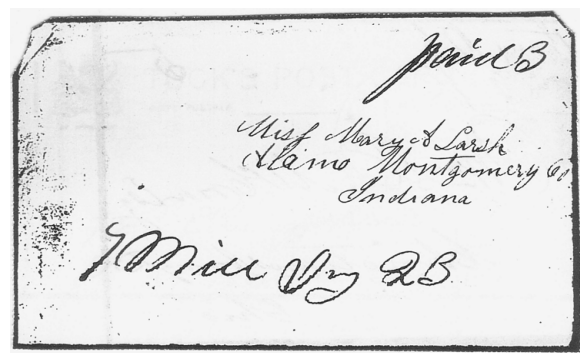 paid B
Miss Mary A Larsh
Alamo Montgomery Co
Indiana
Mill